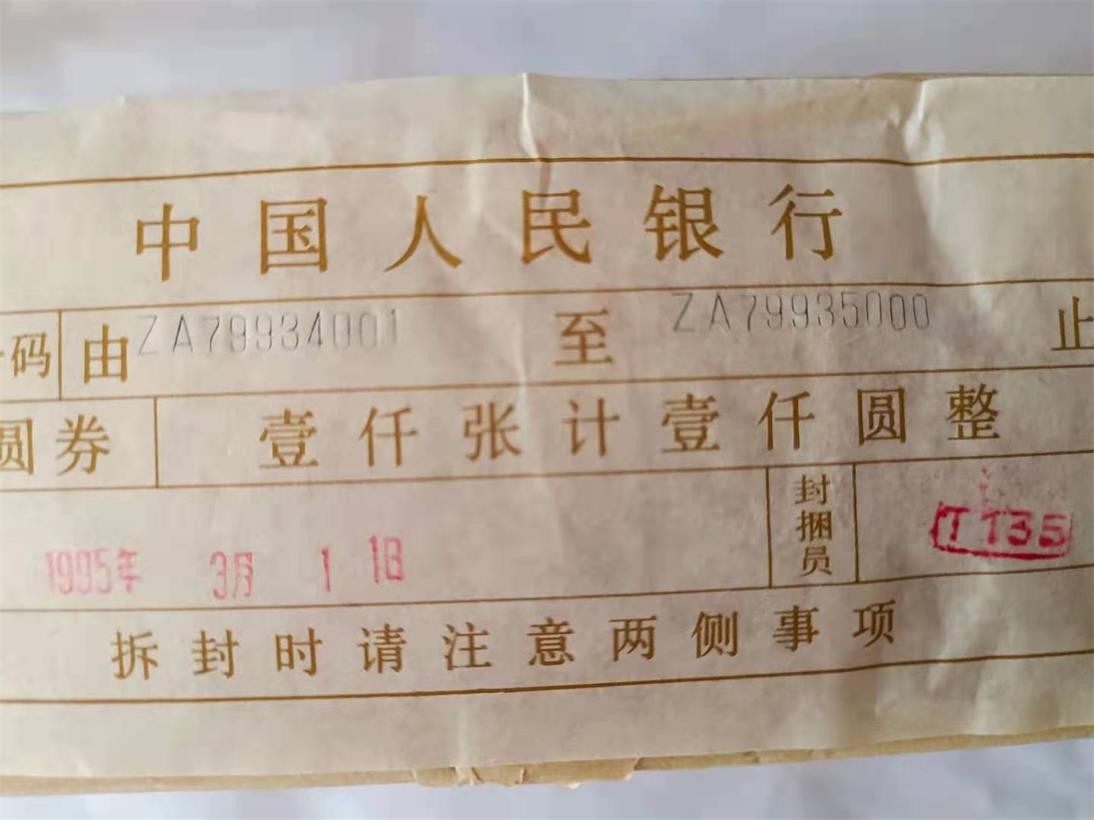 中国人民银行
码 由 ZA79934001 至 ZA79935000 止
圆券 壹仟张计壹仟圆整
1995年 3月 1 1日 封捆员 T 135
拆封时请注意两侧事项